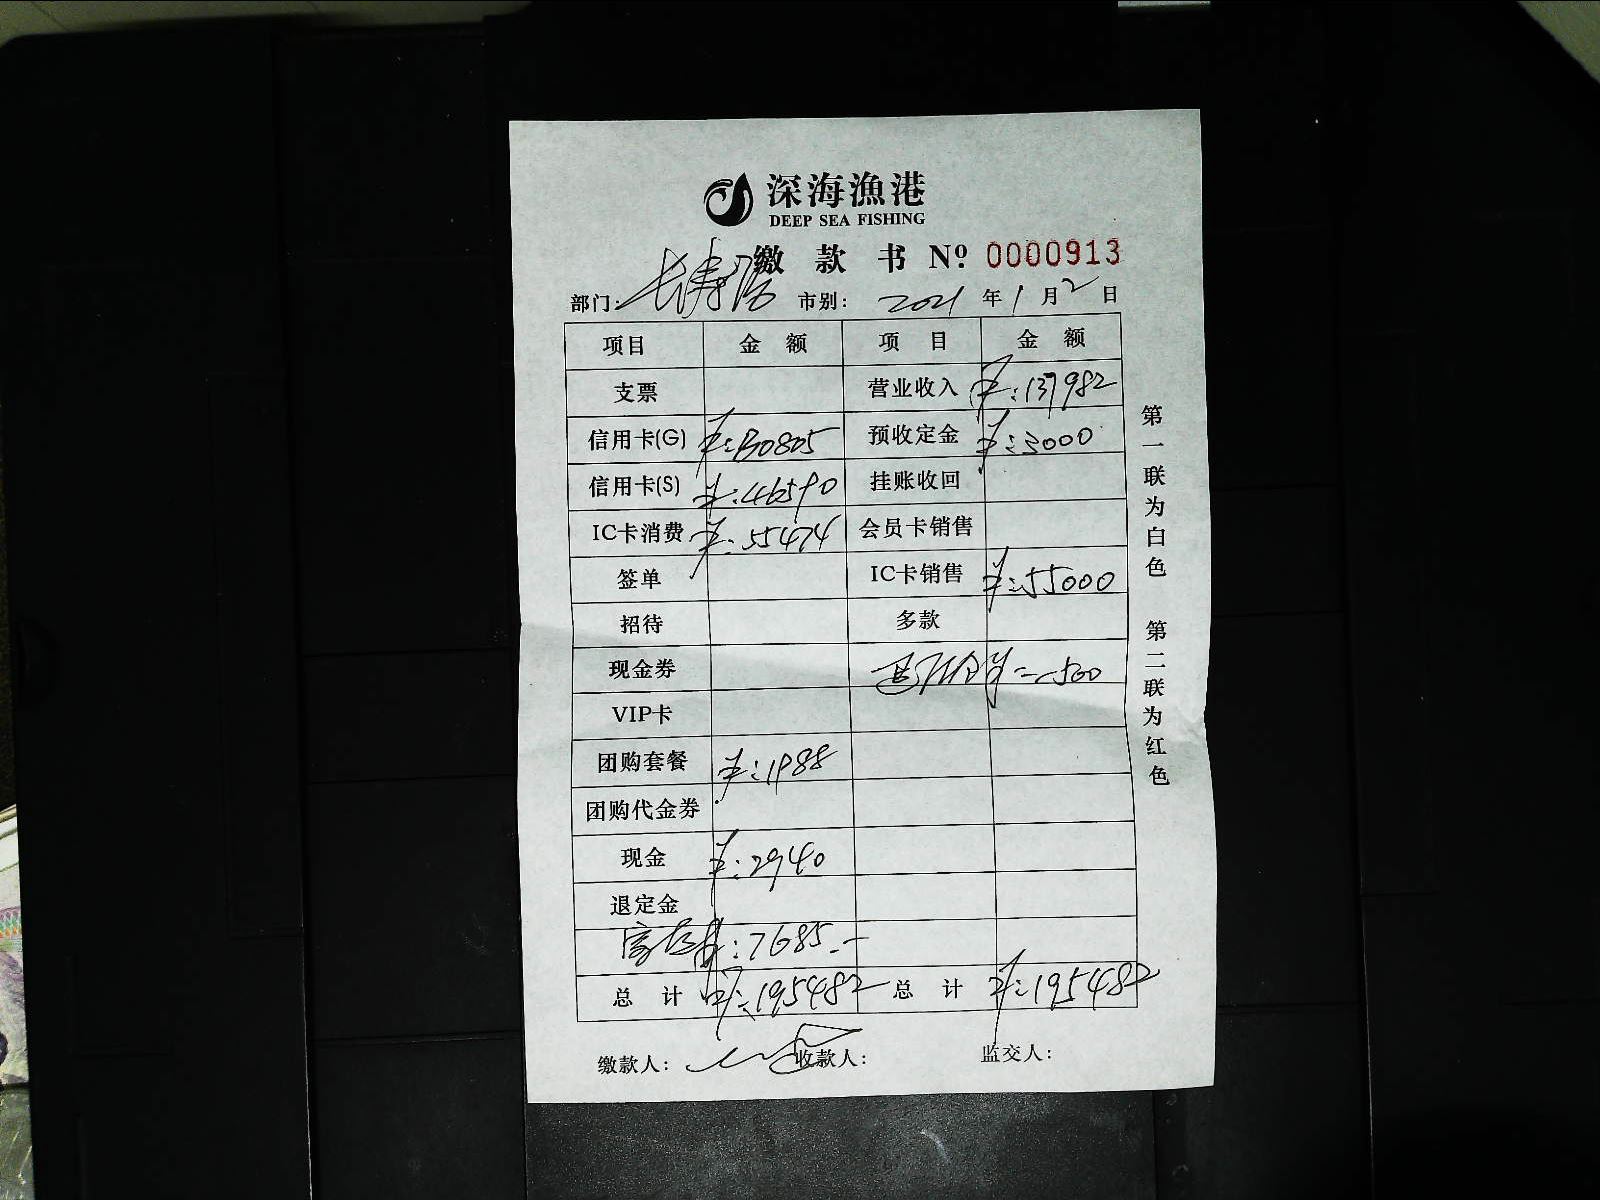 深海漁港
DEEP SEA FISHING
缴款书 Nº 0000913
部门: 长寿路 市别: 2021 年 1 月 2 日
项目 金额 项目 金额
支票 营业收入 ¥:137982
信用卡(G) ¥:80805 预收定金 ¥:3000
信用卡(S) ¥:46590 挂账收回
IC卡消费 ¥:55474 会员卡销售
签单 IC卡销售 ¥:55000
招待 多款
现金券 退订金 ¥:-500
VIP卡
团购套餐 ¥:1988
团购代金券
现金 ¥:2940
退定金
¥:7685.-
总计 ¥:195482 总计 ¥:195482
缴款人: 收款人: 监交人:
第一联为白色 第二联为红色